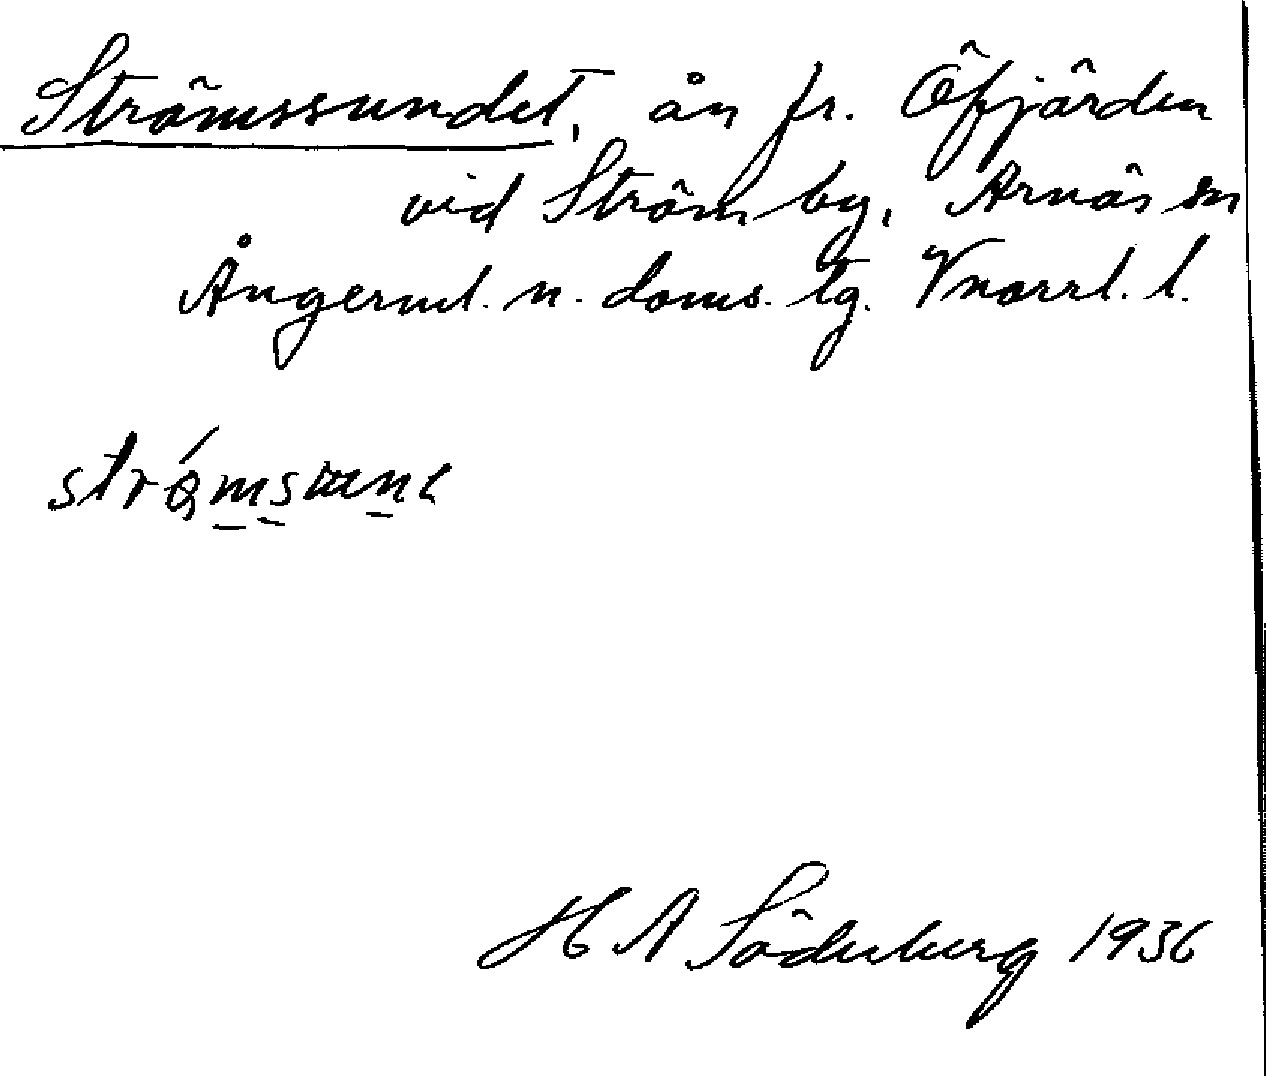 Strömssundet, ån fr. Öfjärden
vid Ström by, Arnäs sn
Ångerml. n. doms. lg. Vnorrl. l.
H A Söderberg 1936